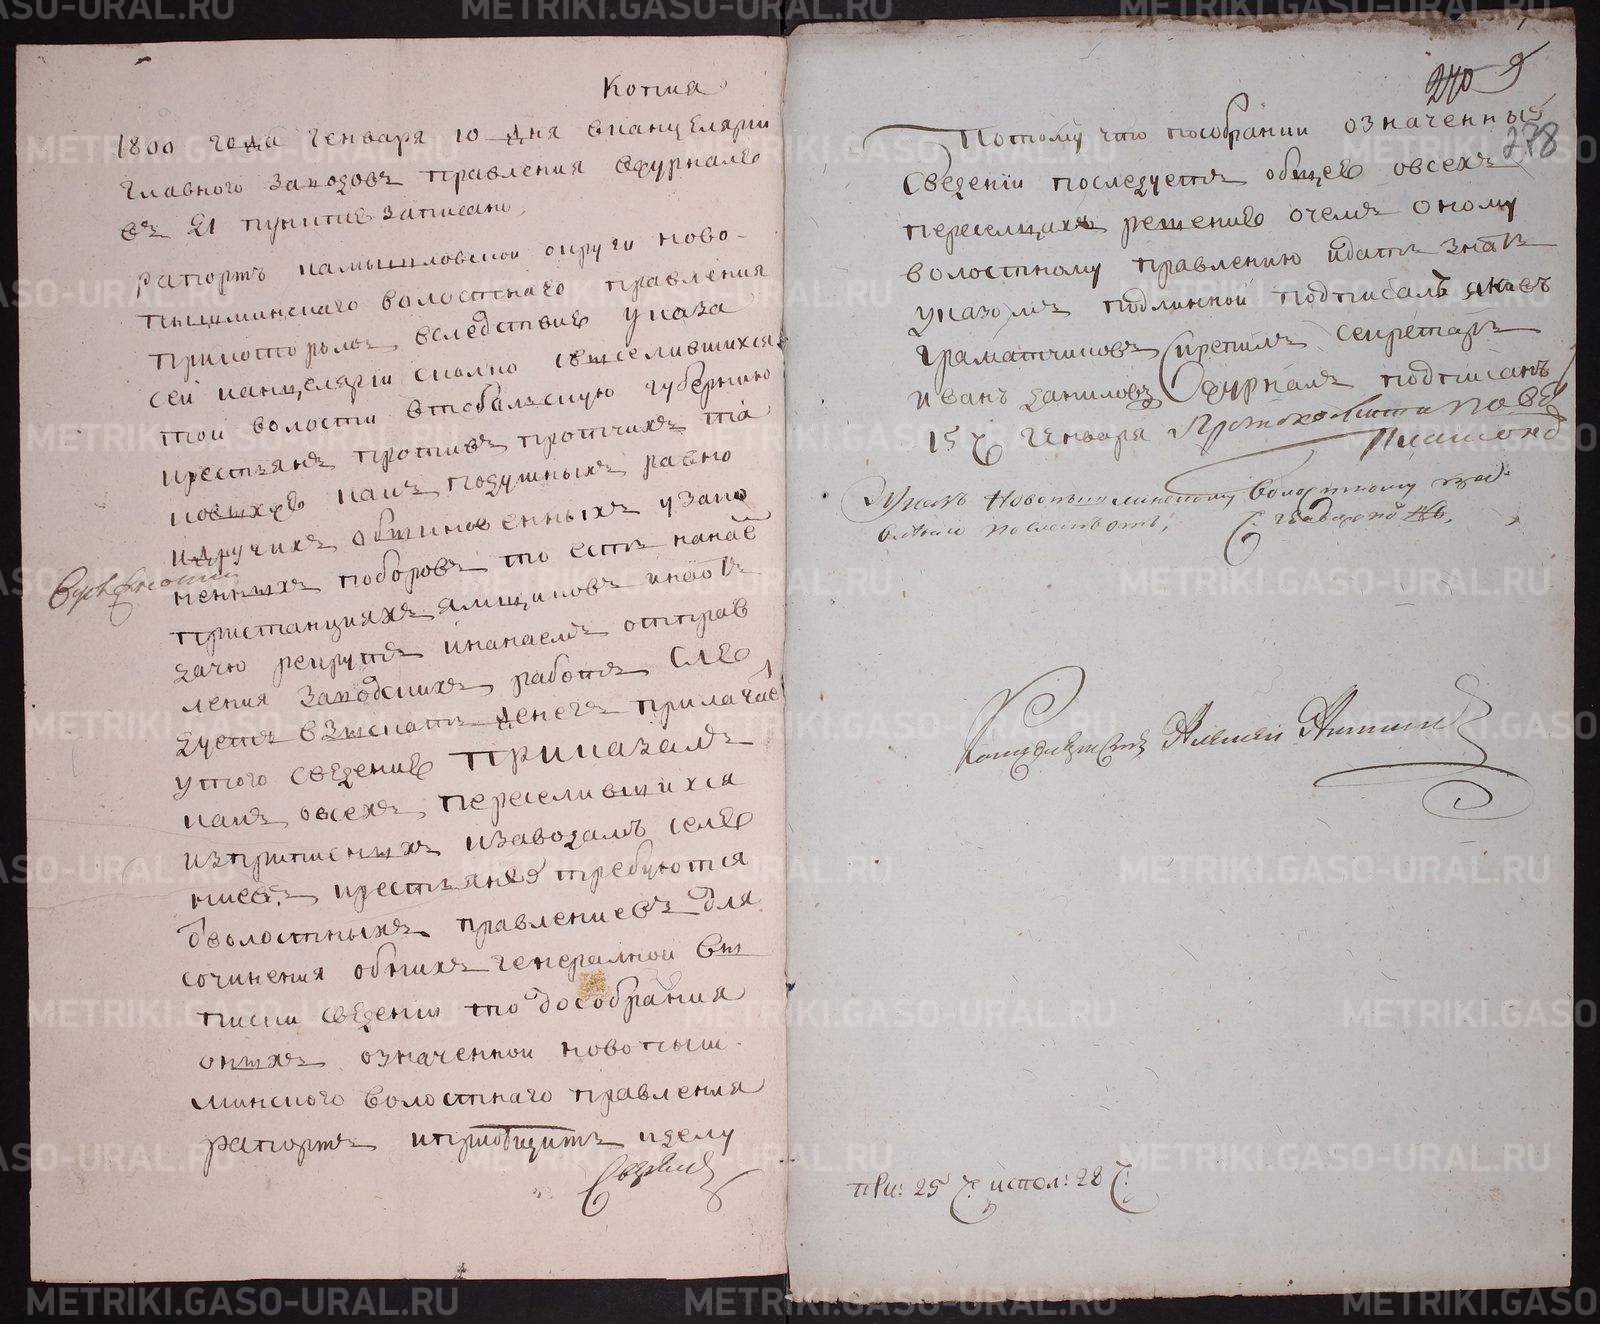 Копия
1800 года Генваря 10 дня вканцелярии
главного Заводовъ правления вжурнале
въ 21 пункте записано
рапортъ камышловской округи ново-
пышминскаго волостнаго правления
прикоторомъ вследствие указа
сей канцелярии сколко свыселившихся
той волости втобалскую губернию
крестьянъ противъ протчихъ та
ковыхже какъ подушныхъ равно
идругихъ обыкновенныхъ узако
ненныхъ поборовъ то есть нанаем
пристанцияхъ ямщиковъ инаот
дачю рекрутъ инанаемъ отправ
ления Заводскихъ работъ Сле
дуетъ взыскать денегъ прилагае
утого сведение приказали
какъ овсехъ переселившихся
изприписныхъ кзаводамъ селе
ниевъ крестьянехъ требуются
отволостныхъ правлениевъ для
сочинения обнихъ генералной вы
писки сведении то дособрания
оныхъ означенной новопыш-
минского волостнаго правления
рапортъ иприобщить кделу
240
278
Потому что пособрании означенныхъ
Сведении последуетъ общее овсехъ
переселцахъ решение очемъ оному
волостному правлению идать знать
указомъ подлинной подписалъ Яковъ
Граматчиковъ Скрепилъ секретарь
Иванъ Даниловъ Журналъ подписанъ
15 ч Генваря
Указъ Новопышминскому Волостному прав
лению посланъ
Канцеляристъ Алексей Никитинъ
при: 25 ч. испол: 28 ч.